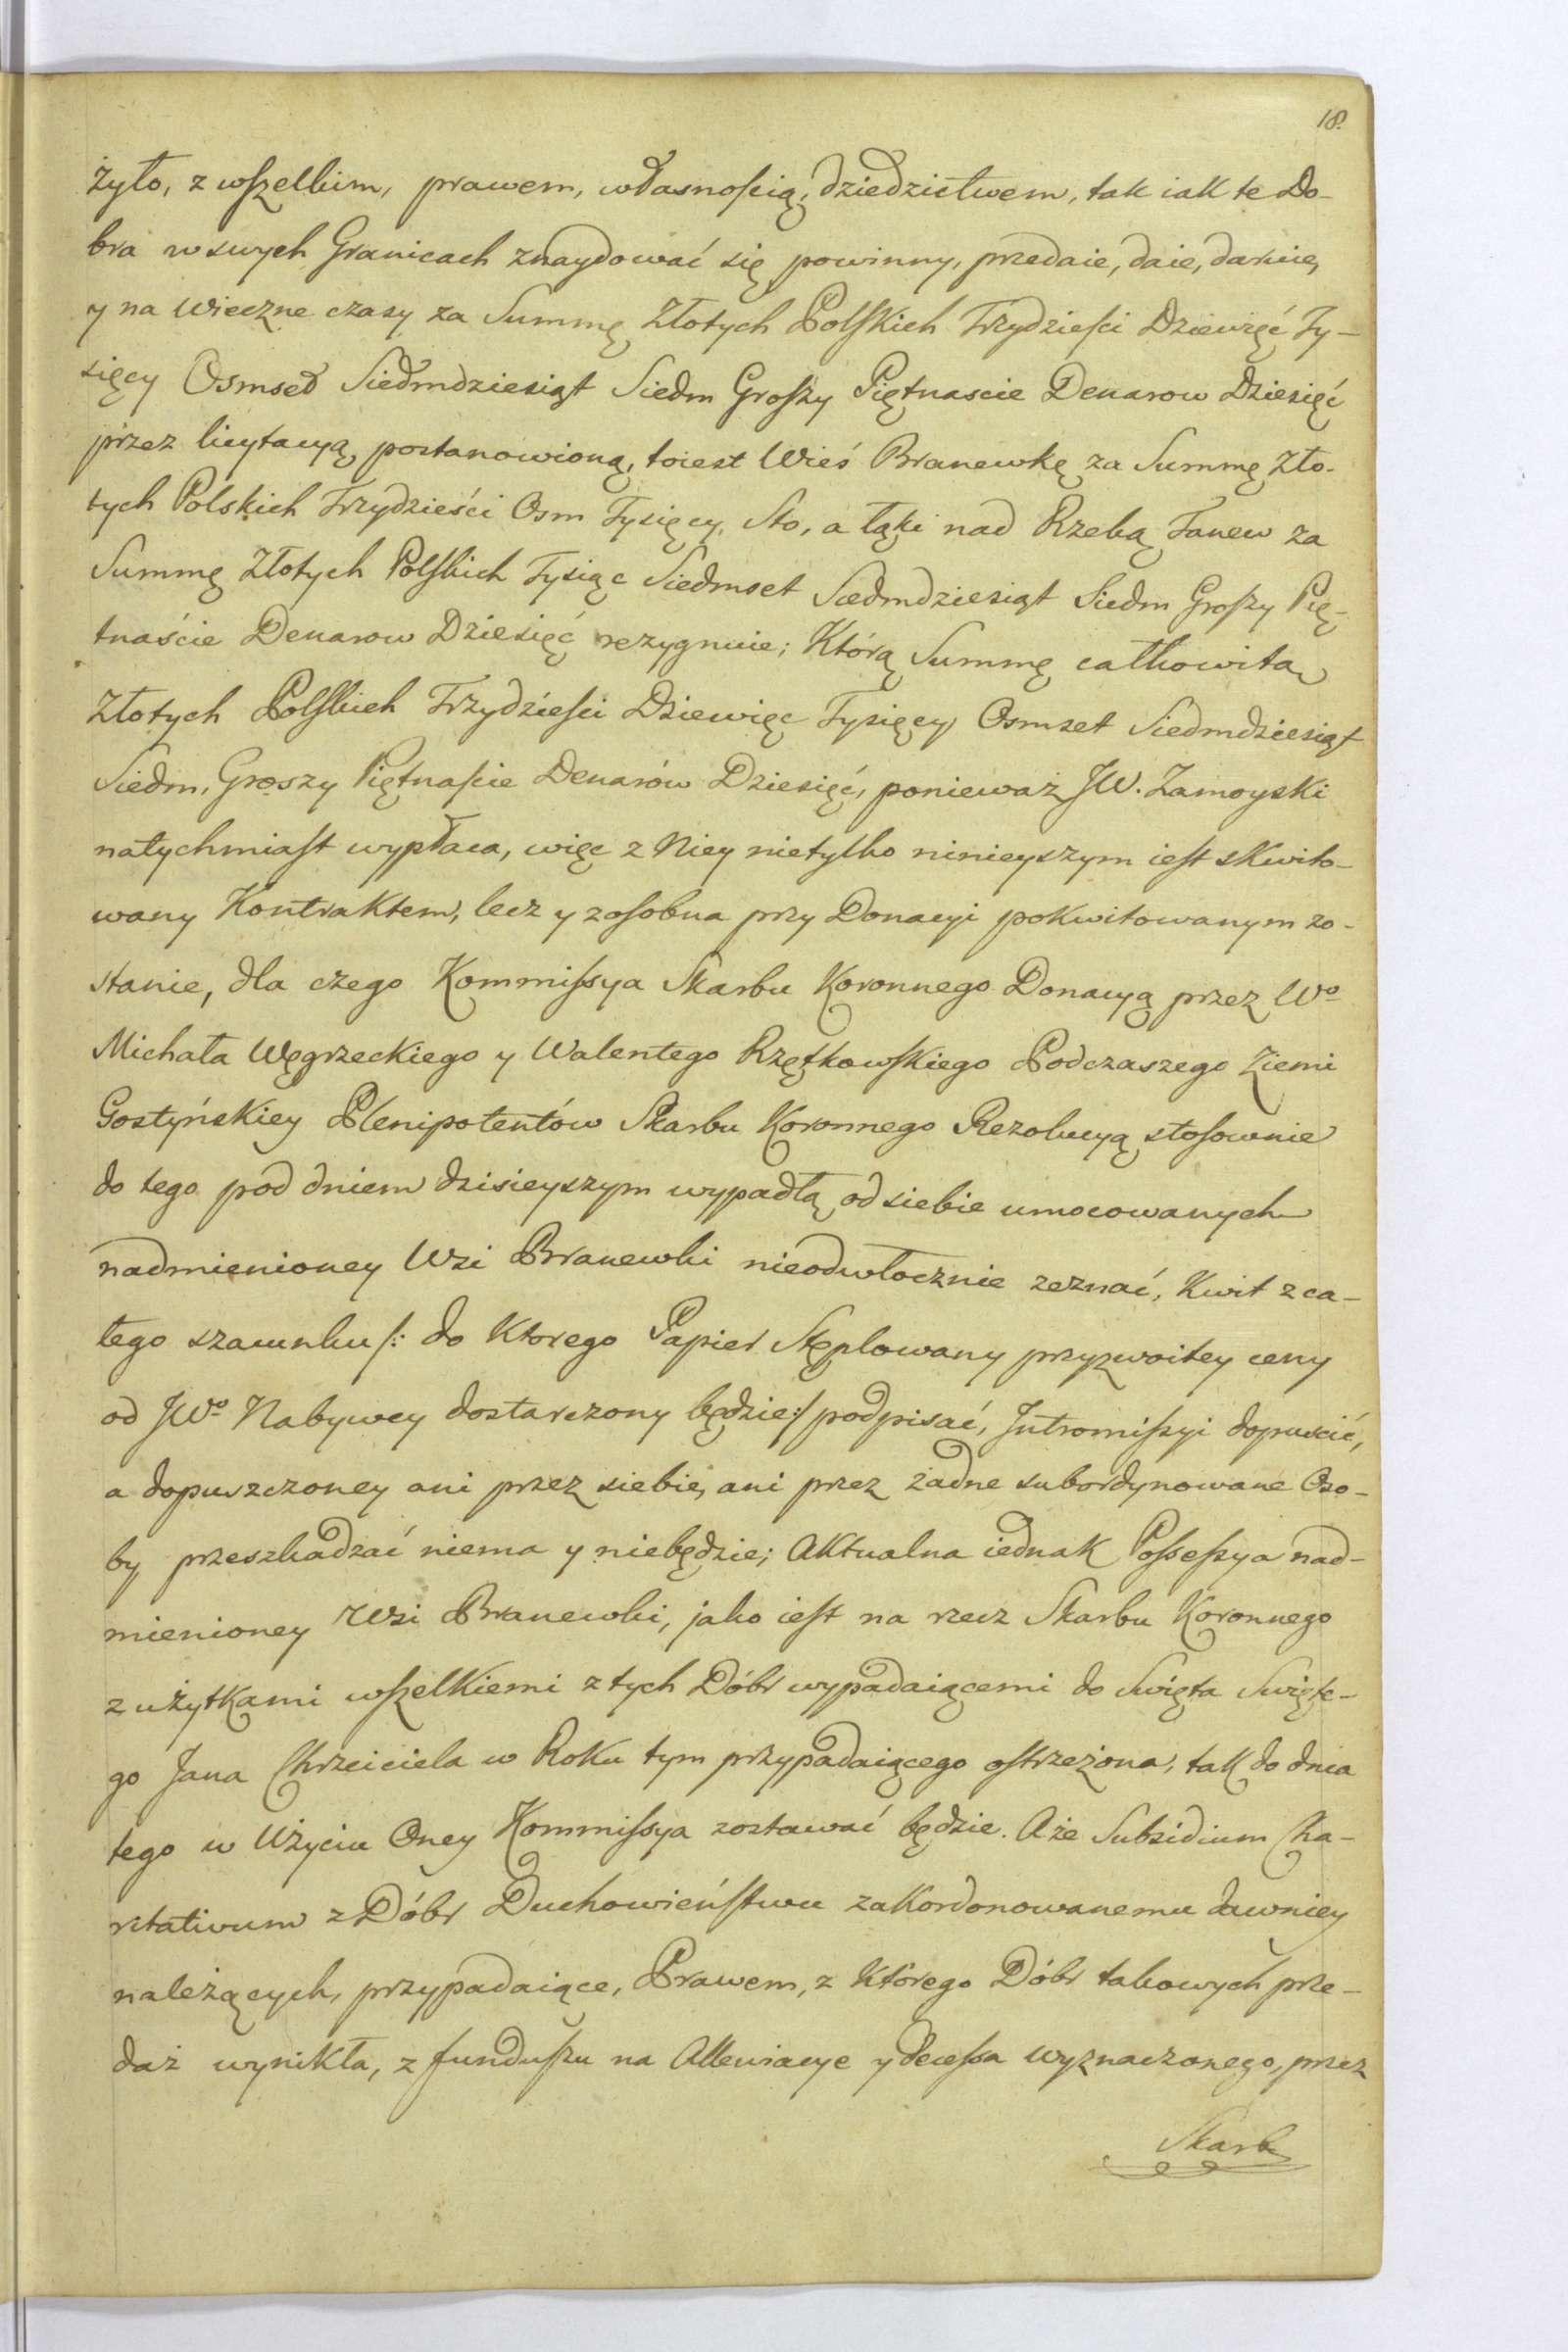 18.
żyło, z wszelkim, prawem, własnością, dziedzictwem, tak iak te Do-
bra w swych Granicach znaydować się powinny, przedaie, daie, daruie,
y na Wieczne czasy za Summę Złotych Polskich Trzydzieści Dziewięć Ty-
sięcy Osmset Siedmdziesiąt Siedm Groszy Piętnascie Denarow Dziesięć
przez licytacyą postanowioną, toiest Wieś Branewkę za Summę Zło-
tych Polskich Trzydzieści Osm Tysięcy, Sto, a łąki nad Rzeką Tanew za
Summę Złotych Polskich Tysiąc Siedmset Siedmdziesiąt Siedm Groszy Pię-
tnaście Denarow Dziesięć rezygnuie; Którą Summę całkowitą
Złotych Polskich Trzydzieści Dziewięc Tysięcy Osmset Siedmdziesiąt
Siedm, Groszy Piętnaście Denarów Dziesięć, ponieważ JW. Zamoyski
natychmiast wypłaca, więc z Niey nietylko ninieyszym iest skwito-
wany Kontraktem, lecz y zosobna przy Donacyi pokwitowanym zo-
stanie, dla czego Kommissya Skarbu Koronnego Donacyą przez Wo
Michała Węgrzeckiego y Walentego Rzętkowskiego Podczaszego Ziemi
Gostyńskiey Plenipotentów Skarbu Koronnego Rezolucyą stosownie
do tego pod dniem dzisieyszym wypadłą od siebie umocowanych
nadmienioney Wsi Branewki nieodwłocznie zeznać, Kwit z ca-
łego szacunku /: do Ktorego Papier Stęplowany przyzwoitey ceny
od JWo Nabywcy dostarczony będzie :/ podpisać, Intromissyi dopuścić,
a dopuszczoney ani przez siebie, ani przez żadne subordynowane Oso-
by przeszkadzać niema y niebędzie; Aktualna iednak Possessya nad-
mienioney Wsi Branewki, jako iest na rzecz Skarbu Koronnego
z użytkami wszelkiemi z tych Dóbr wypadaiącemi do Swięta Swięte-
go Jana Chrzciciela w Roku tym przypadaiącego ostrzeżona, tak do dnia
tego w Użyciu Oney Kommissya zostawać będzie. A że Subsidium Cha-
ritativum z Dóbr Duchowieństwu zakordonowanemu dawniey
należących, przypadaiące, Prawem, z którego Dóbr takowych prze-
daż wynikła, z funduszu na Allewiacye y decessa wyznaczonego, przez
Skarb